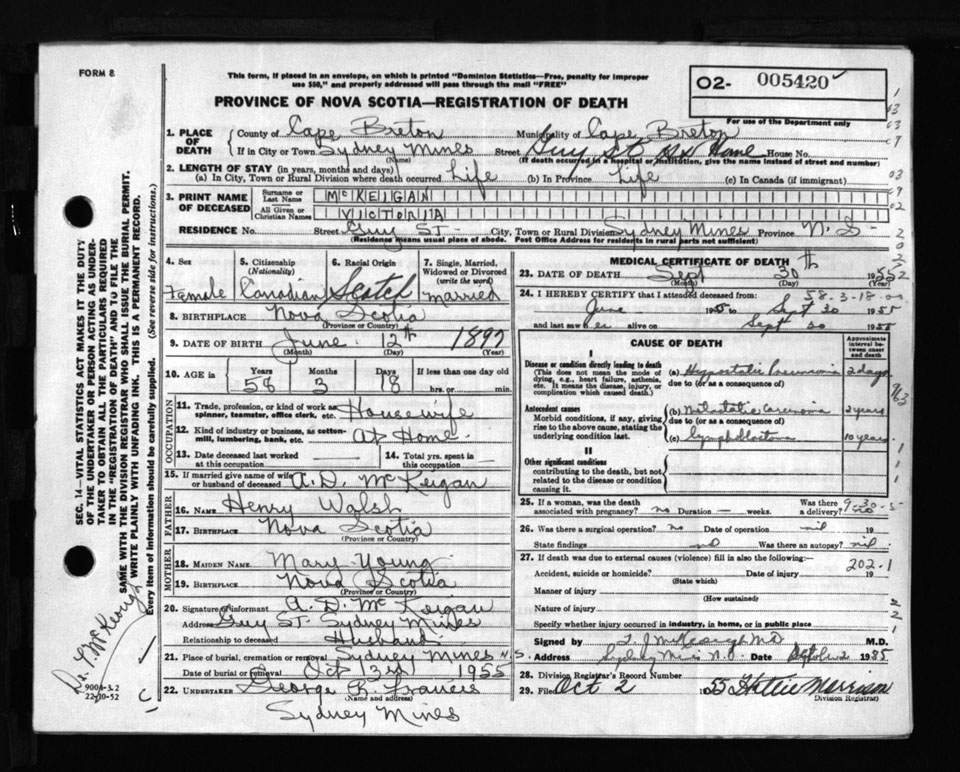 FORM 8
This form, if placed in an envelope, on which is printed "Dominion Statistics—Free, penalty for improper
use $50," and properly addressed will pass through the mail "FREE"
PROVINCE OF NOVA SCOTIA—REGISTRATION OF DEATH
02- 005420
For use of the Department only
1. PLACE OF DEATH
County of Cape Breton Municipality of Cape Breton
If in City or Town Sydney Mines Street Guy St. Home House No.
(Name) (If death occurred in a hospital or institution, give the name instead of street and number)
2. LENGTH OF STAY (in years, months and days)
(a) In City, Town or Rural Division where death occurred Life (b) In Province Life (c) In Canada (if immigrant)
3. PRINT NAME OF DECEASED
Surname or Last Name McKEIGAN
All Given or Christian Names VICTORIA
RESIDENCE No. Street Guy ST. City, Town or Rural Division Sydney Mines Province N. S.
(Residence means usual place of abode. Post Office Address for residents in rural parts not sufficient)
4. Sex Female
5. Citizenship (Nationality) Canadian
6. Racial Origin Scotch
7. Single, Married, Widowed or Divorced (write the word) Married
8. BIRTHPLACE Nova Scotia
(Province or Country)
9. DATE OF BIRTH June 12th 1897
(Month) (Day) (Year)
10. AGE in Years Months Days If less than one day
58 3 18 hrs. or min.
OCCUPATION
11. Trade, profession, or kind of work as spinner, teamster, office clerk, etc. Housewife
12. Kind of industry or business, as cotton-mill, lumbering, bank, etc. At Home
13. Date deceased last worked at this occupation
14. Total yrs. spent in this occupation
15. If married give name of wife or husband of deceased A. D. McKeigan
FATHER
16. NAME Henry Walsh
17. BIRTHPLACE Nova Scotia
(Province or Country)
MOTHER
18. MAIDEN NAME Mary Young
19. BIRTHPLACE Nova Scotia
(Province or Country)
20. Signature of informant A. D. McKeigan
Address Guy ST. Sydney Mines
Relationship to deceased Husband
21. Place of burial, cremation or removal Sydney Mines N. S.
Date of burial or removal Oct 3rd 1955
22. UNDERTAKER George R. Francis
(Name and address)
Sydney Mines
MEDICAL CERTIFICATE OF DEATH
23. DATE OF DEATH Sept 30th 1955
(Month) (Day)
58-3-18-00
24. I HEREBY CERTIFY that I attended deceased from:
June 1955 to Sept 30 1955
and last saw her alive on Sept 30 1955
CAUSE OF DEATH
Approximate interval between onset and death
I
Disease or condition directly leading to death
(This does not mean the mode of dying, e.g., heart failure, asthenia, etc. It means the disease, injury, or complication which caused death.)
(a) Hypostatic Pneumonia 2 days
due to (or as a consequence of)
Antecedent causes
Morbid conditions, if any, giving rise to the above cause, stating the underlying condition last.
(b) Metastatic Carcinoma 2 years
due to (or as a consequence of)
(c) Lymphoblastoma 10 years
II
Other significant conditions
contributing to the death, but not related to the disease or condition causing it.
25. If a woman, was the death associated with pregnancy? no Duration — weeks. Was there a delivery?
26. Was there a surgical operation? no Date of operation nil 19
State findings nil Was there an autopsy? nil
27. If death was due to external causes (violence) fill in also the following:
202.1
Accident, suicide or homicide? Date of injury 19
(State which)
Manner of injury
(How sustained)
Nature of injury
Specify whether injury occurred in industry, in home, or in public place
Signed by M.D.
Address Sydney Mines N.S. Date 1955
28. Division Registrar's Record Number
29. Filed Oct 2 1955 Hattie Morrison
Division Registrar
SEC. 14—VITAL STATISTICS ACT MAKES IT THE DUTY
OF THE UNDERTAKER OR PERSON ACTING AS UNDER-
TAKER TO OBTAIN ALL THE PARTICULARS REQUIRED
IN THE "REGISTRATION OF DEATH" AND TO FILE THE
SAME WITH THE DIVISION REGISTRAR WHO SHALL ISSUE THE BURIAL PERMIT.
WRITE PLAINLY WITH UNFADING INK. THIS IS A PERMANENT RECORD.
Every item of information should be carefully supplied. (See reverse side for instructions.)
9004-3.2
22-10-52